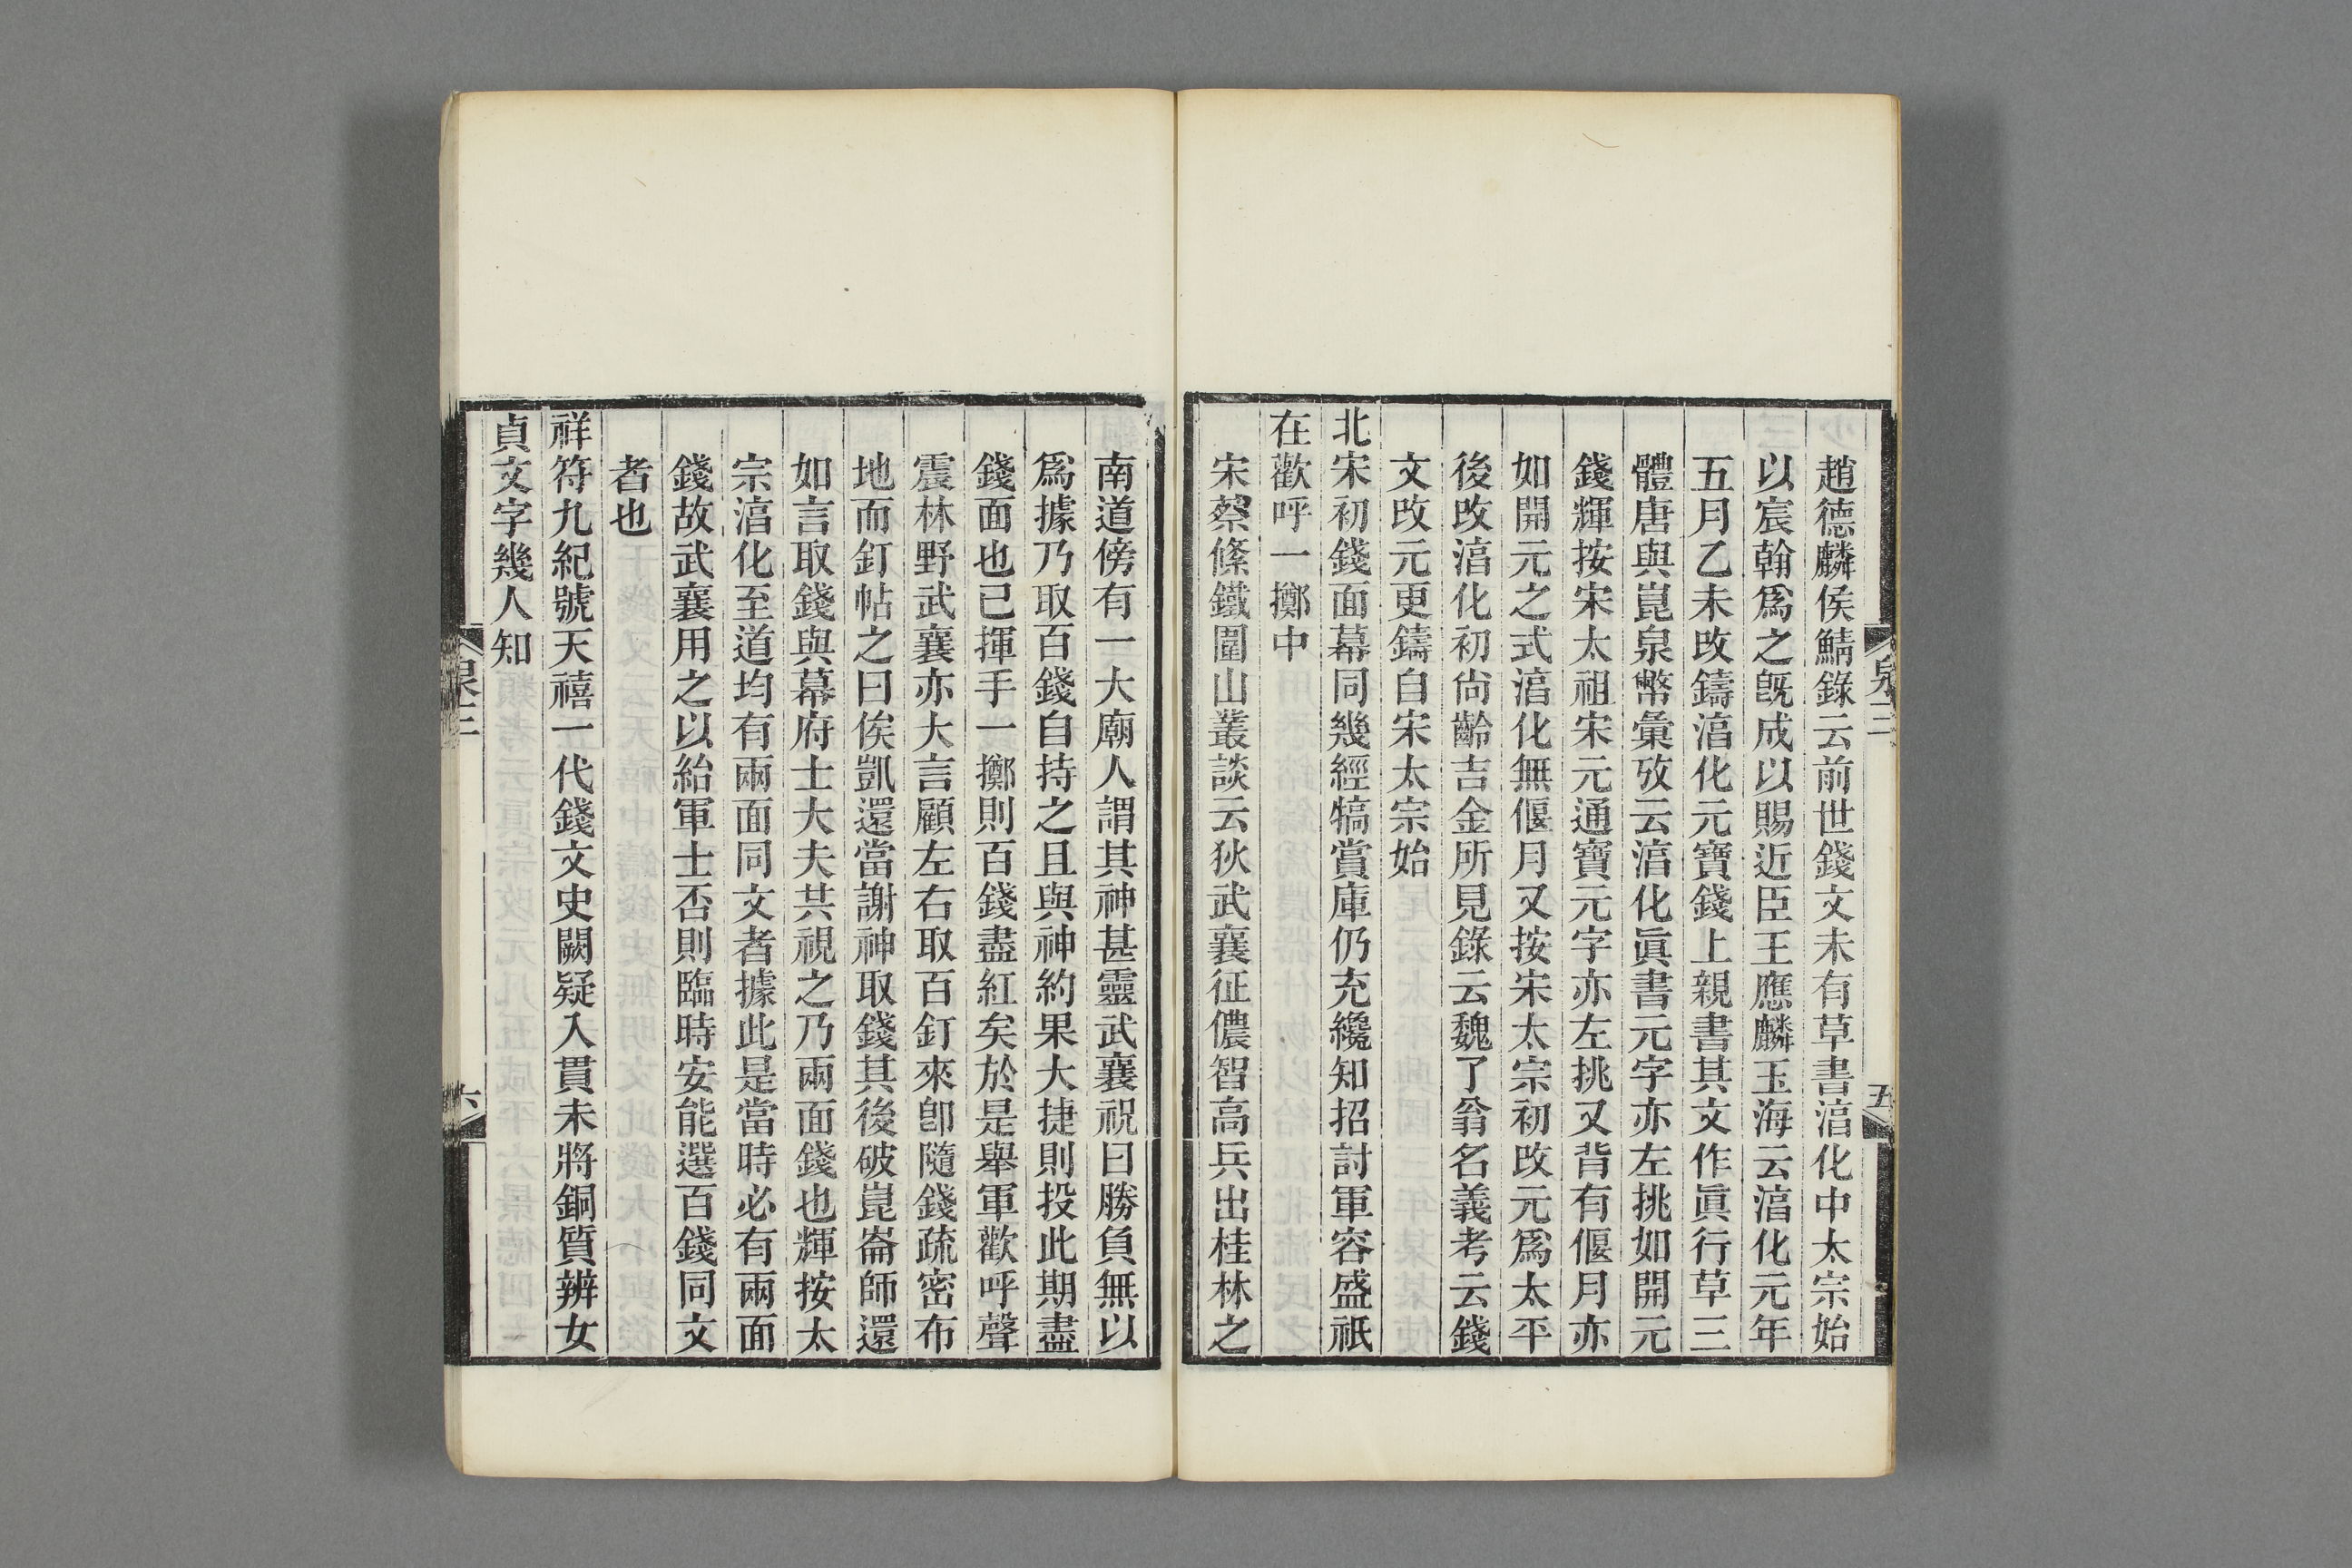 泉三
五
趙德麟侯鯖錄云前世錢文未有草書湻化中太宗始
以宸翰爲之旣成以賜近臣王應麟玉海云湻化元年
五月乙未改鑄湻化元寶錢上親書其文作眞行草三
體唐與崑泉幣彙攷云湻化眞書元字亦左挑如開元
錢輝按宋太祖宋元通寶元字亦左挑又背有偃月亦
如開元之式湻化無偃月又按宋太宗初改元爲太平
後改湻化初尙齡吉金所見錄云魏了翁名義考云錢
文改元更鑄自宋太宗始
北宋初錢面幕同幾經犒賞庫仍充纔知招討軍容盛祇
在歡呼一擲中
宋蔡絛鐵圍山叢談云狄武襄征儂智高兵出桂林之
南道傍有一大廟人謂其神甚靈武襄祝曰勝負無以
爲據乃取百錢自持之且與神約果大捷則投此期盡
錢面也已揮手一擲則百錢盡紅矣於是舉軍歡呼聲
震林野武襄亦大言顧左右取百釘來卽隨錢疏密布
地而釘帖之曰俟凱還當謝神取錢其後破崑崙師還
如言取錢與幕府士大夫共視之乃兩面錢也輝按太
宗湻化至道均有兩面同文者據此是當時必有兩面
錢故武襄用之以紿軍士否則臨時安能選百錢同文
者也
祥符九紀號天禧一代錢文史闕疑入貫未將銅質辨女
貞文字幾人知
泉三
六